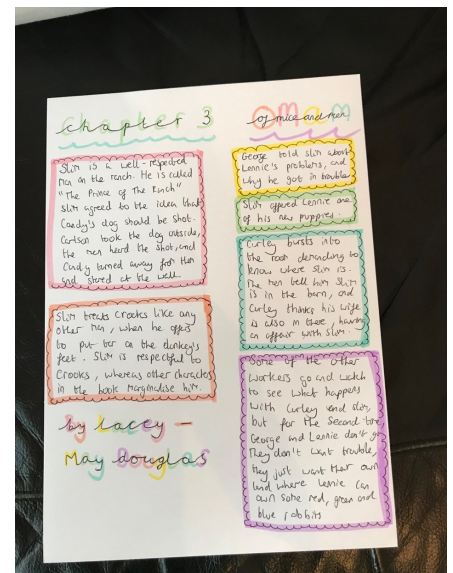 Chapter 3
Slim is a well-respected
man on the ranch. He is called
"The Prince of The Ranch"
Slim agreed to the idea that
Candy's dog should be shot.
Carlson took the dog outside,
the men heard the shot, and
Candy turned away from them
and stared at the wall.
Slim treats crooks like any
other man, when he offers
to put tar on the donkey's
feet. Slim is respectful to
Crooks, whereas other characters
in the book marginalise him.
by Lacey-
May douglas
OMAM
of mice and men
George told slim about
Lennie's problems, and
why he got in trouble
Slim offered Lennie one
of his new puppies.
Curley bursts into
the room demanding to
know where slim is.
The men tell him Slim
is in the barn, and
Curley thinks his wife
is also in there, having
an affair with Slim.
Some of the other
workers go and watch
to see what happens
with Curley and slim,
but for the second time,
George and Lennie don't go
They don't want trouble,
they just want their own
land where Lennie can
own some red, green and
blue rabbits